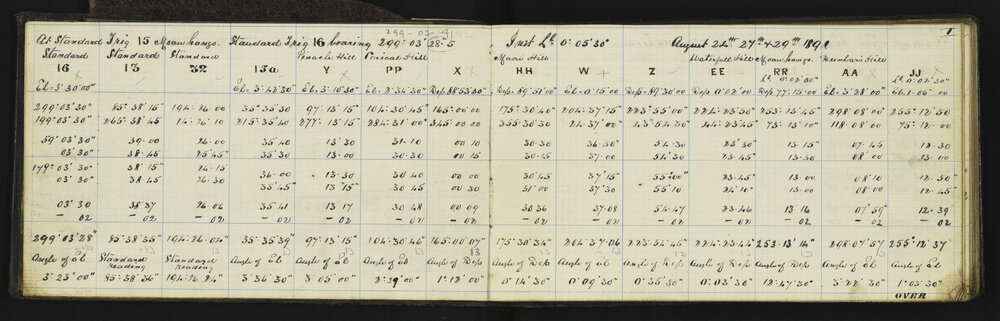 299-03-41
At Standard Trig 15 Moawhango. Standard Trig 16 bearing 299° 03' 28"·5 Inst Lt 0° 05' 30" August 24th 27th & 29th 1891 1
Standard Standard Standard Pinnacle Hill Conical Hill Maori Hill Waterfall Hill Moawhango
16 13 32 13a Y PP X HH W Z EE RR AA JJ
Lt 0° 02' 00" Lt 0° 02' 30"
El = 3° 30' 00" El = 3° 42' 30" El = 3° 10' 30" El = 2° 34' 30" Dep 88° 53' 30" Dep 89° 51' 00" El = 0° 15' 00" Dep 89° 30' 00" Dep 0° 02' 00 Dep 77° 15' 00 El = 3° 28' 00" El = 1° 06' 00
299° 03' 30" 85° 38' 15" 194° 26' 00 35° 35' 30 97° 13' 15" 104° 30' 45" 165° 00' 00" 175° 30' 40 204° 37' 15" 223° 55' 00" 224° 23' 45" 253° 13' 45" 298° 08' 00 255° 12' 50
199° 03' 30" 265° 38' 45 14° 26' 10 215° 35' 40 277° 13' 15" 284° 31' 00 345° 00' 00 355° 30' 30 24° 37' 00" 43° 54' 30" 44° 23' 45 73° 13' 10" 118° 08' 00 75° 12' 00
59° 03' 30" 39·00 26·00 35·40 13·30 31·10 00 10 30·30 36·50" 54·30 23' 30" 13·15" 07·45 12·30
03' 30" 38·45 25' 45" 35·30 13·00 30·30 00 15 30·15 37·00 54 30 23·45" 13·30 08' 00 13·00
179° 03' 30" 38' 15" 26·15 36·00 13·30" 30 40 00 00 30·45 37' 15" 55' 00" 23·45" 13·00 08' 10 12·30"
03' 30" 38·45 26·30 35' 45" 13' 15" 30 45 00 30 31' 00 37' 30 55' 10 24' 10" 13·00 08·00 12·45
03' 30 38 37 26·06 35' 41 13 17 30 48 00 09 30 36 37·08 54·47 23·46 13 16 07' 59" 12·39
– 02 – 02 – 02 – 02 – 02 – 02 – 02 – 02 – 02 – 02 – 02 – 02 – 02 – 02
299° 03' 28" 85° 38' 35" 194° 26' 04" 35° 35' 39 97° 13' 15" 104° 30' 46" 165° 00' 07" 175° 30' 34" 204° 37·06 223° 54' 45 224° 23' 44 253° 13' 14" 298° 07' 57 255° 12' 37
Angle of El Standard reading Standard reading Angle of El Angle of El Angle of El Angle of Dep Angle of Dep Angle of El Angle of Dep Angle of Dep Angle of Dep Angle of El Angle of El
3° 25' 00" 85° 38' 36" 194° 26' 24" 3° 36' 30" 3° 05' 00" 2° 29' 00" 1° 12' 00 0° 14' 30" 0° 09' 30 0° 35' 30" 0° 03' 30" 12° 47' 30 3° 22' 30" 1° 03' 30
OVER